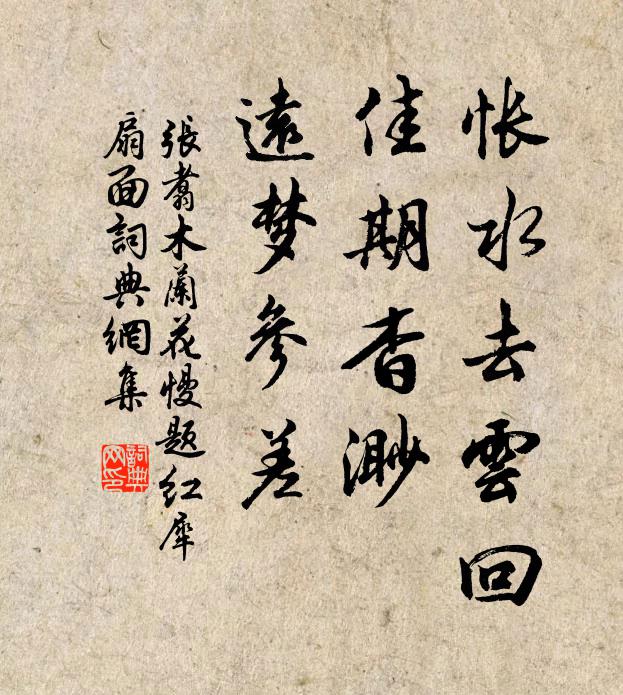 悵水去雲回
佳期杳渺
遠梦參差
張翥木蘭花慢題红犀
扇面詞典網集
詞典
网印